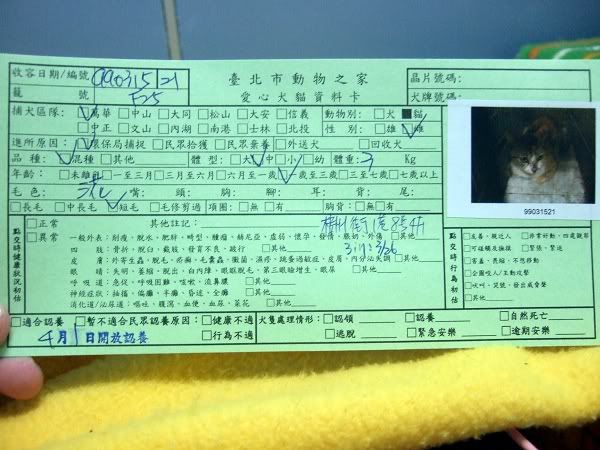 收容日期/編號 990315 21 臺北市動物之家 晶片號碼:
籠號 F25 愛心犬貓資料卡 犬牌號碼:
捕犬區隊: □萬華 □中山 □大同 □松山 □大安 □信義 動物別: □犬 ■貓
□中正 □文山 □內湖 □南港 □士林 □北投 性別: □雄 □雌
進所原因: □環保局捕捉 □民眾拾獲 □民眾棄養 □外送犬 □回收犬
品種: □混種 □其他 體型: □大 □中 □小 □幼 體重: 3 Kg
年齡: □未離乳 □一至三月 □三月至六月 □六月至一歲 □一歲至三歲 □三至七歲 □七歲以上
毛色: 花 嘴: 頭: 胸: 腳: 耳: 背: 尾:
□長毛 □中長毛 □短毛 □毛修剪過 項圈: □無 □有 胸背: □無 □有
99031521
點交時健康狀況初估
□正常 其他註記:
□異常 一般外表: 削瘦、脫水、肥胖、畸型、腫瘤、赫尼亞、虛弱、懷孕、發情、脹奶、外傷 □其他
四肢: 骨折、脫臼、截肢、發育不良、跛行 □其他 3/17 3/26
皮膚: 外寄生蟲、脫毛、疥癬、毛囊蟲、黴菌、濕疹、疑蚤過敏症、皮屑、內分泌失調 □其他
眼睛: 失明、萎縮、脫出、白內障、眼瞼脫毛、第三眼瞼增生、眼屎 □其他
呼吸道: 急促、呼吸困難、咳嗽、流鼻膿 □其他
神經症狀: 抽搐、偏癱、半癱、昏迷、全癱 □其他
消化道/泌尿道: 嘔吐、腹瀉、血便、血尿、菜花 □其他
點交時行為初估
□友善、親近人 □非常好動、四處跳躍
□可碰觸及撫摸 □緊張、緊迫
□害羞、畏縮、不想移動
□企圖咬人/主動攻擊
□吠叫、哭號、發出威脅聲
□其他
□適合認養 □暫不適合民眾認養原因: □健康不適 犬隻處理情形: □認領 □認養 □自然死亡
4月1日開放認養 □行為不適 □逃脫 □緊急安樂 □逾期安樂